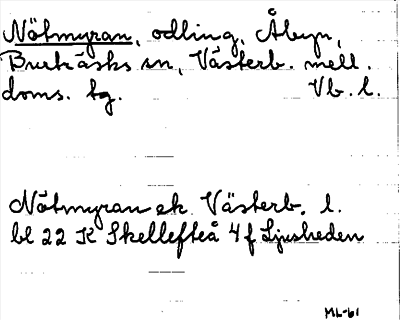 Nötmyran, odling, Åbyn,
Burträsks sn, Västerb. mell.
doms. tg. Vb. l.
Nötmyran ek. Västerb. l.
bl 22 K Skellefteå 4 f Ljusheden
ML-61